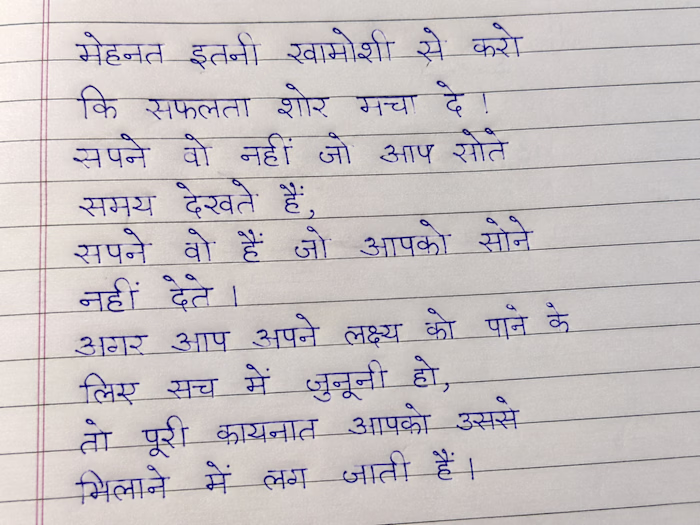 मेहनत इतनी खामोशी से करो
कि सफलता शोर मचा दे !
सपने वो नहीं जो आप सोते
समय देखते हैं,
सपने वो हैं जो आपको सोने
नहीं देते ।
अगर आप अपने लक्ष्य को पाने के
लिए सच में जुनूनी हो,
तो पूरी कायनात आपको उससे
मिलाने में लग जाती हैं ।